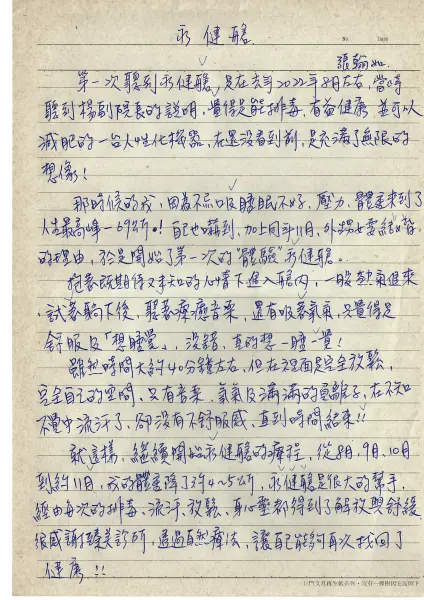 永健艙
No.
Date
張翰如
第一次聽到永健艙,是在去年2022年8月左右,當時
聽到楊副院長的說明,覺得是能排毒、有益健康,並可以
減肥的一台人性化機器,在還沒看到前,是充滿了無限的
想像!
那時候的我,因為不忌口及睡眠不好,壓力、體重來到了
人生最高峰—69公斤!自己也嚇到,加上同年11月,外甥女要結婚
的理由,於是開始了第一次的"體驗"永健艙。
抱著既期待又未知的心情下進入艙內,一股熱氣進來
,試著躺下後,聽著療癒音樂,還有吸著氧氣,只覺得是
舒服及「想睡覺」,沒錯,真的想一睡一覺!
雖然時間大約40分鐘左右,但在裡面是完全放鬆,
完全自己的空間,只有音樂、氧氣及滿滿的負離子,在不知
不覺中流汗了,卻沒有不舒服感,直到時間結束!!
就這樣,繼續開始永健艙的療程,從8月,9月,10月
到約11月,我的體重降了約4~5公斤,永健艙是很大的幫手,
經由每次的排毒、流汗、放鬆,身心靈都得到了解放與舒緩
很感謝臻美診所,透過自然療法,讓自己能夠再次找回了
健康!!